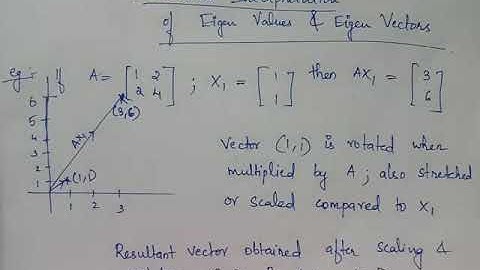 of Eigen Values & Eigen Vectors
eg : If A = [1 2; 2 4] ; X₁ = [1; 1] then AX₁ = [3; 6]
6
5
4
3
2
1
1 2 3
(3,6)
AX₁
(1,1)
Vector (1,1) is rotated when
multiplied by A ; also stretched
or scaled compared to X₁
Resultant vector obtained after scaling &